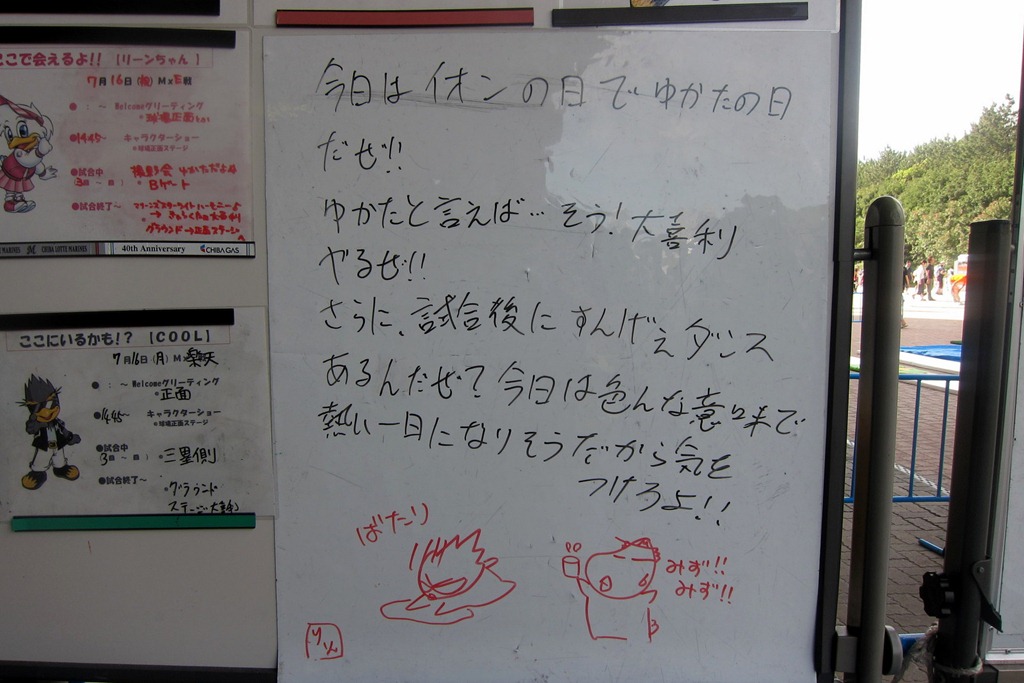 ここで会えるよ!! 【リーンちゃん】
7月16日(祝) M×E戦
● : ～ Welcomeグリーティング
・球場正面
●14:45～ キャラクターショー
※球場正面ステージ
●試合中
(3回～ 回) :
撮影会 ゆかただよ
Bゲート
●試合終了～
グラウンド→正面ステージ
CHIBA LOTTE MARINES
40th Anniversary
CHIBAGAS
ここにいるかも!? 【COOL】
7月16日(月) M×楽天
● : ～ Welcomeグリーティング
・正面
●14:45～ キャラクターショー
※球場正面ステージ
●試合中
(3回～ 回) : 三塁側
●試合終了～
・グラウンド
ステージ大喜利
今日はイオンの日でゆかたの日
だぜ!!
ゆかたと言えば…そう!大喜利
やるぜ!!
さらに、試合後にすんげぇダンス
あるんだぜ?今日は色んな意味で
熱い一日になりそうだから気を
つけろよ!!
ばたり
みず!!
みず!!
りん